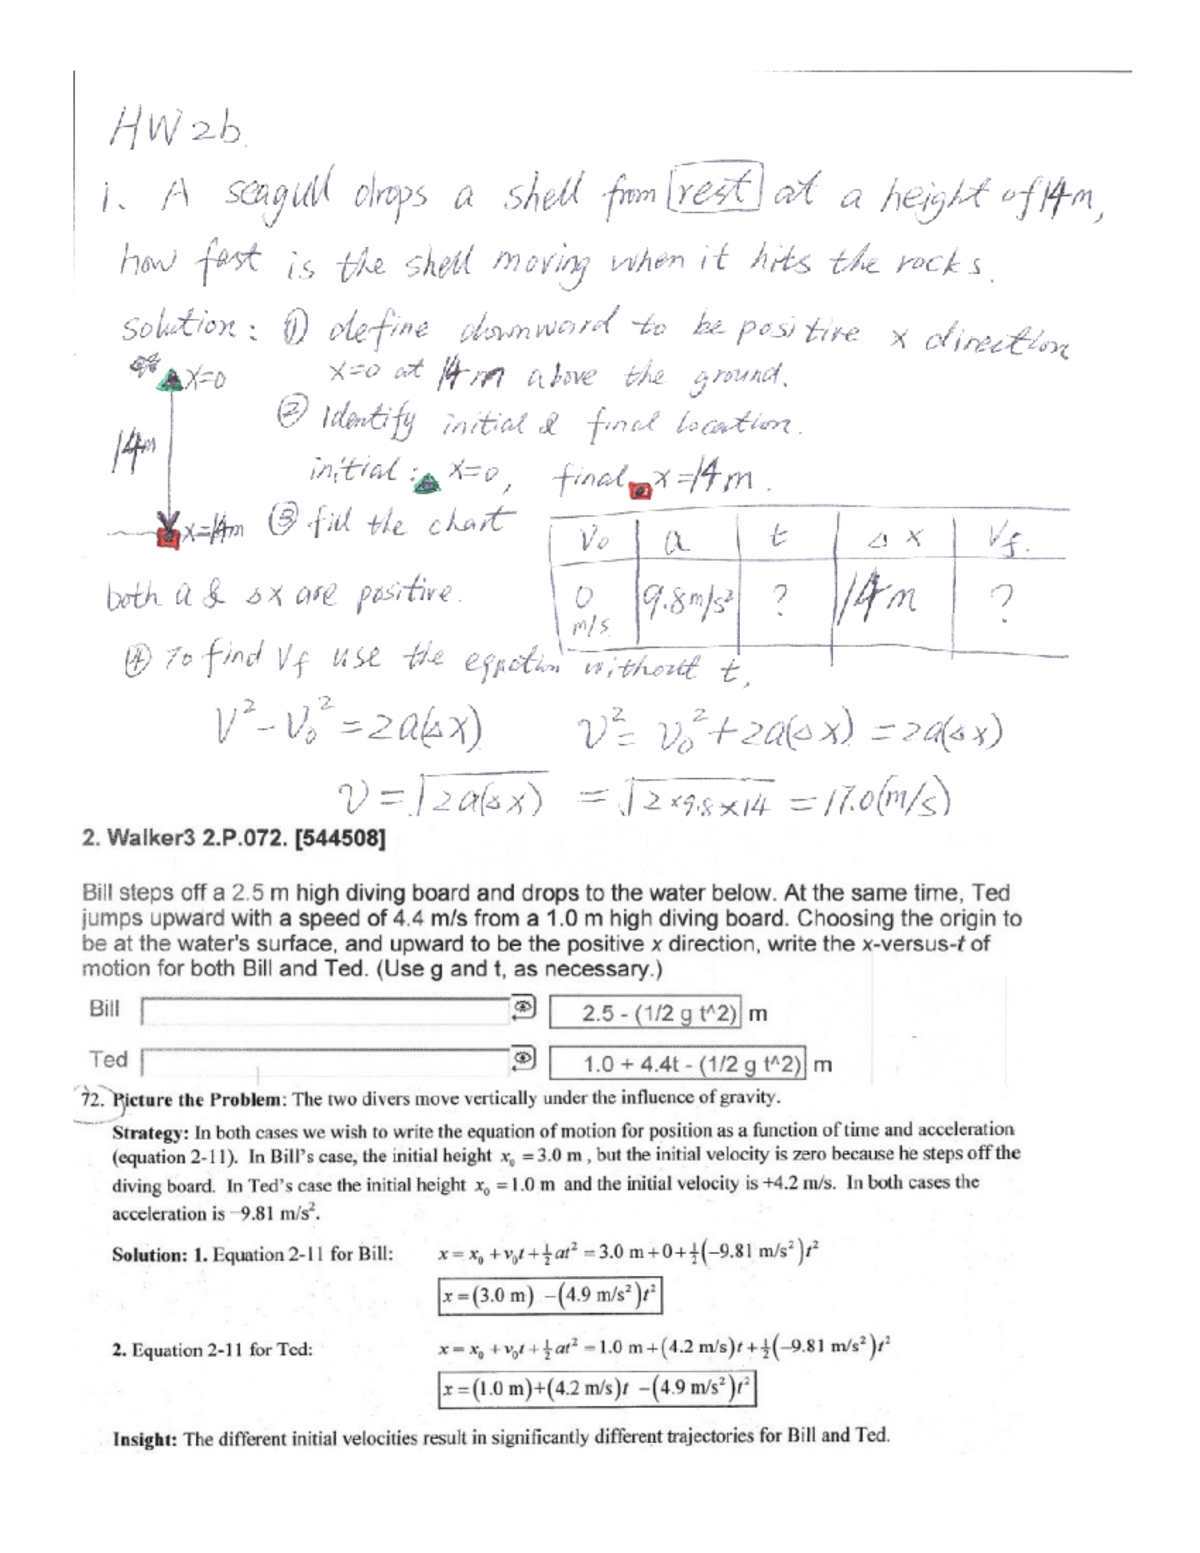 HW2b.
1. A seagull drops a shell from rest at a height of 14m,
how fast is the shell moving when it hits the rocks.
solution: ① define downward to be positive x direction
x=0 x=0 at 14m above the ground.
② Identify initial & final location.
14m
initial: x=0, final x=14m.
x=14m ③ fill the chart
V₀ a t Δx Vf.
both a & Δx are positive.
0 m/s 9.8m/s² ? 14m ?
④ To find Vf use the eqaction without t,
V²-V₀²=2a(Δx) v²= v₀²+2a(Δx) =2a(Δx)
v=√2a(Δx) =√2×9.8×14 =17.0(m/s)
2. Walker3 2.P.072. [544508]
Bill steps off a 2.5 m high diving board and drops to the water below. At the same time, Ted
jumps upward with a speed of 4.4 m/s from a 1.0 m high diving board. Choosing the origin to
be at the water's surface, and upward to be the positive x direction, write the x-versus-t of
motion for both Bill and Ted. (Use g and t, as necessary.)
Bill 2.5 - (1/2 g t^2) m
Ted 1.0 + 4.4t - (1/2 g t^2) m
72. Picture the Problem: The two divers move vertically under the influence of gravity.
Strategy: In both cases we wish to write the equation of motion for position as a function of time and acceleration
(equation 2-11). In Bill's case, the initial height x₀ = 3.0 m , but the initial velocity is zero because he steps off the
diving board. In Ted's case the initial height x₀ = 1.0 m and the initial velocity is +4.2 m/s. In both cases the
acceleration is −9.81 m/s².
Solution: 1. Equation 2-11 for Bill: x = x₀ + v₀t + ½at² = 3.0 m + 0 + ½(−9.81 m/s²)t²
x = (3.0 m) − (4.9 m/s²)t²
2. Equation 2-11 for Ted: x = x₀ + v₀t + ½at² = 1.0 m + (4.2 m/s)t + ½(−9.81 m/s²)t²
x = (1.0 m)+(4.2 m/s)t − (4.9 m/s²)t²
Insight: The different initial velocities result in significantly different trajectories for Bill and Ted.